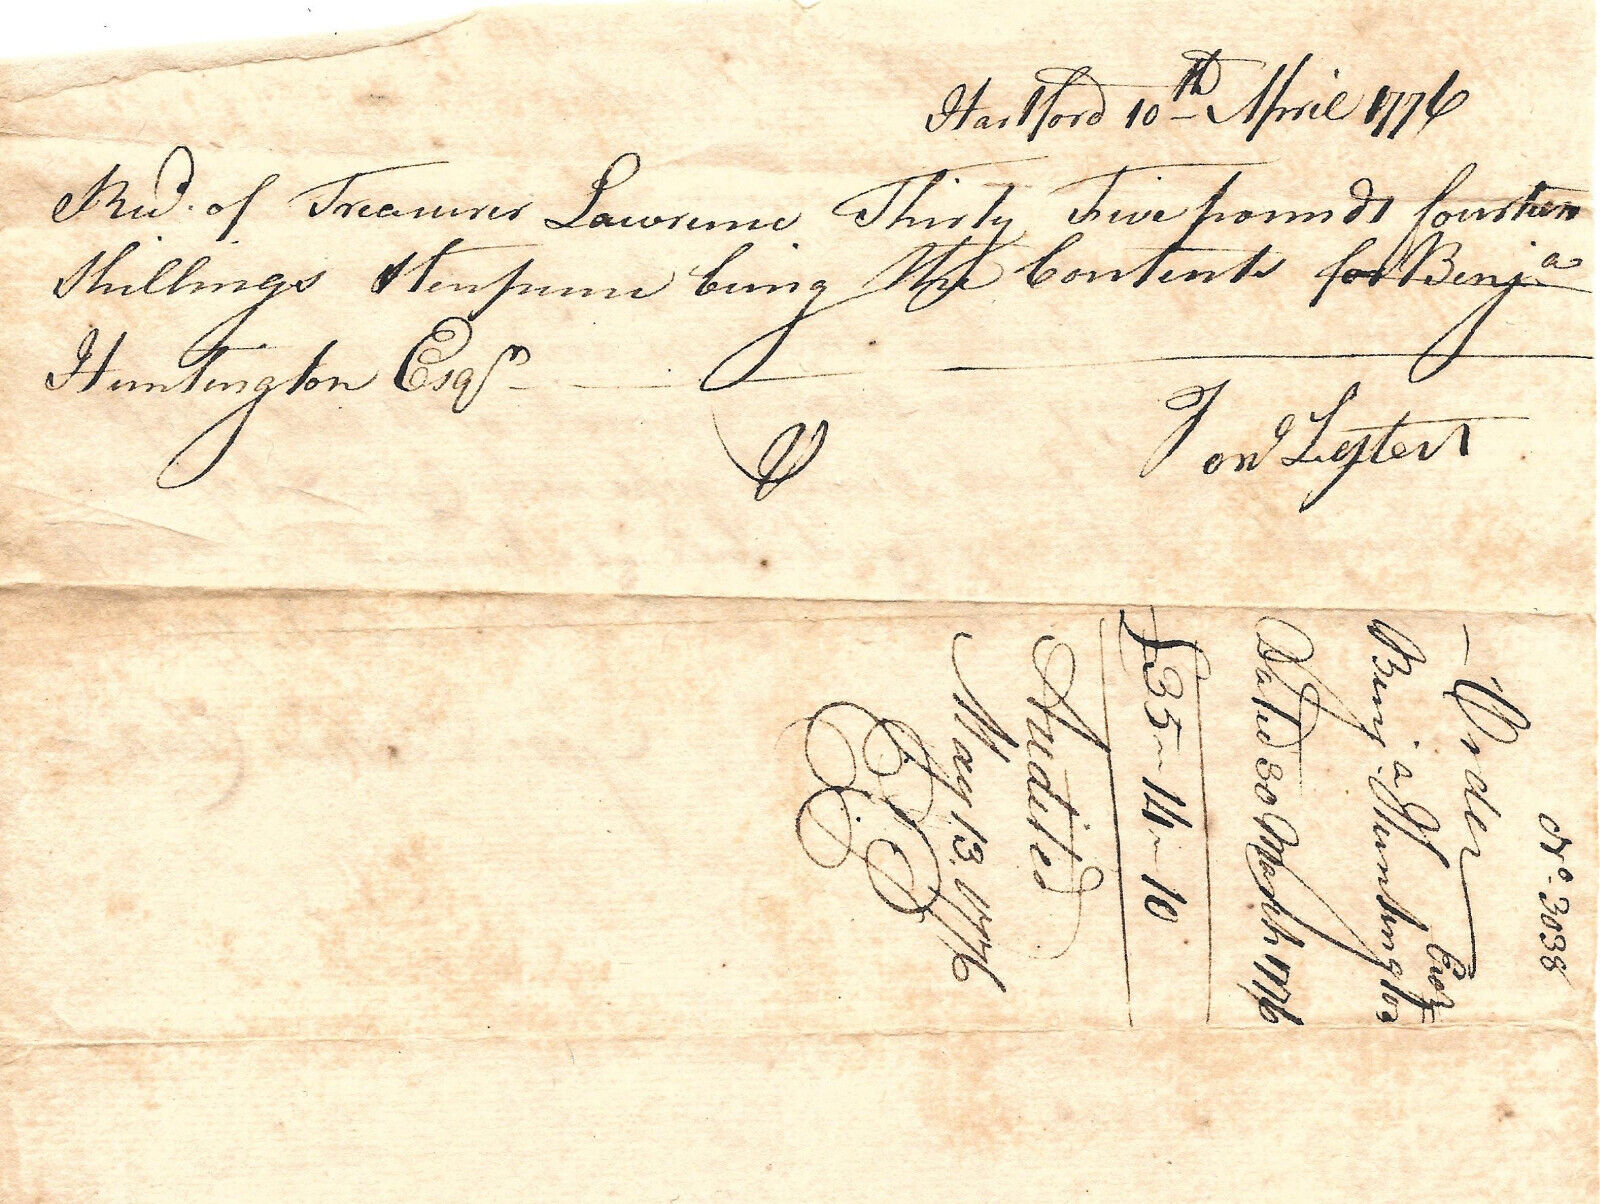 Hartford 10th April 1776
Recd. of Treasurer Lawrence Thirty Five pounds fourteen
Shillings & tenpence being the Contents for Benja
Huntington Esqr
Jond Leftert
No. 3038
Order
Benja. Huntington Esqr
Dated 30 March 1776
£35-14-10
Audited
May 13. 1776